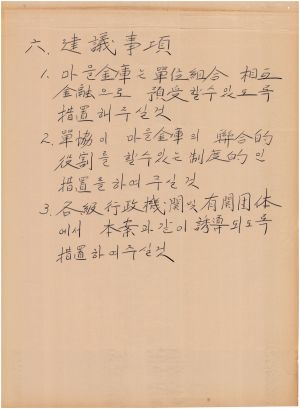 六. 建議事項
1. 마을金庫는 單位組合 相互
金融으로 預受할수있도록
措置해주실것
2. 單協이 마을金庫의 聯合的
役割을 할수있는 制度的인
措置를하여주실것
3. 各級行政機關및 有関団体
에서 本案과같이 誘導되도록
措置하여주실것